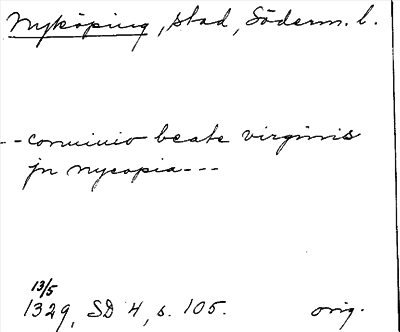 Nyköping, stad, Söderm. l.
--conuiuio beate virginis
jn nycopia---
13/5
1329, SD 4, s. 105. orig.